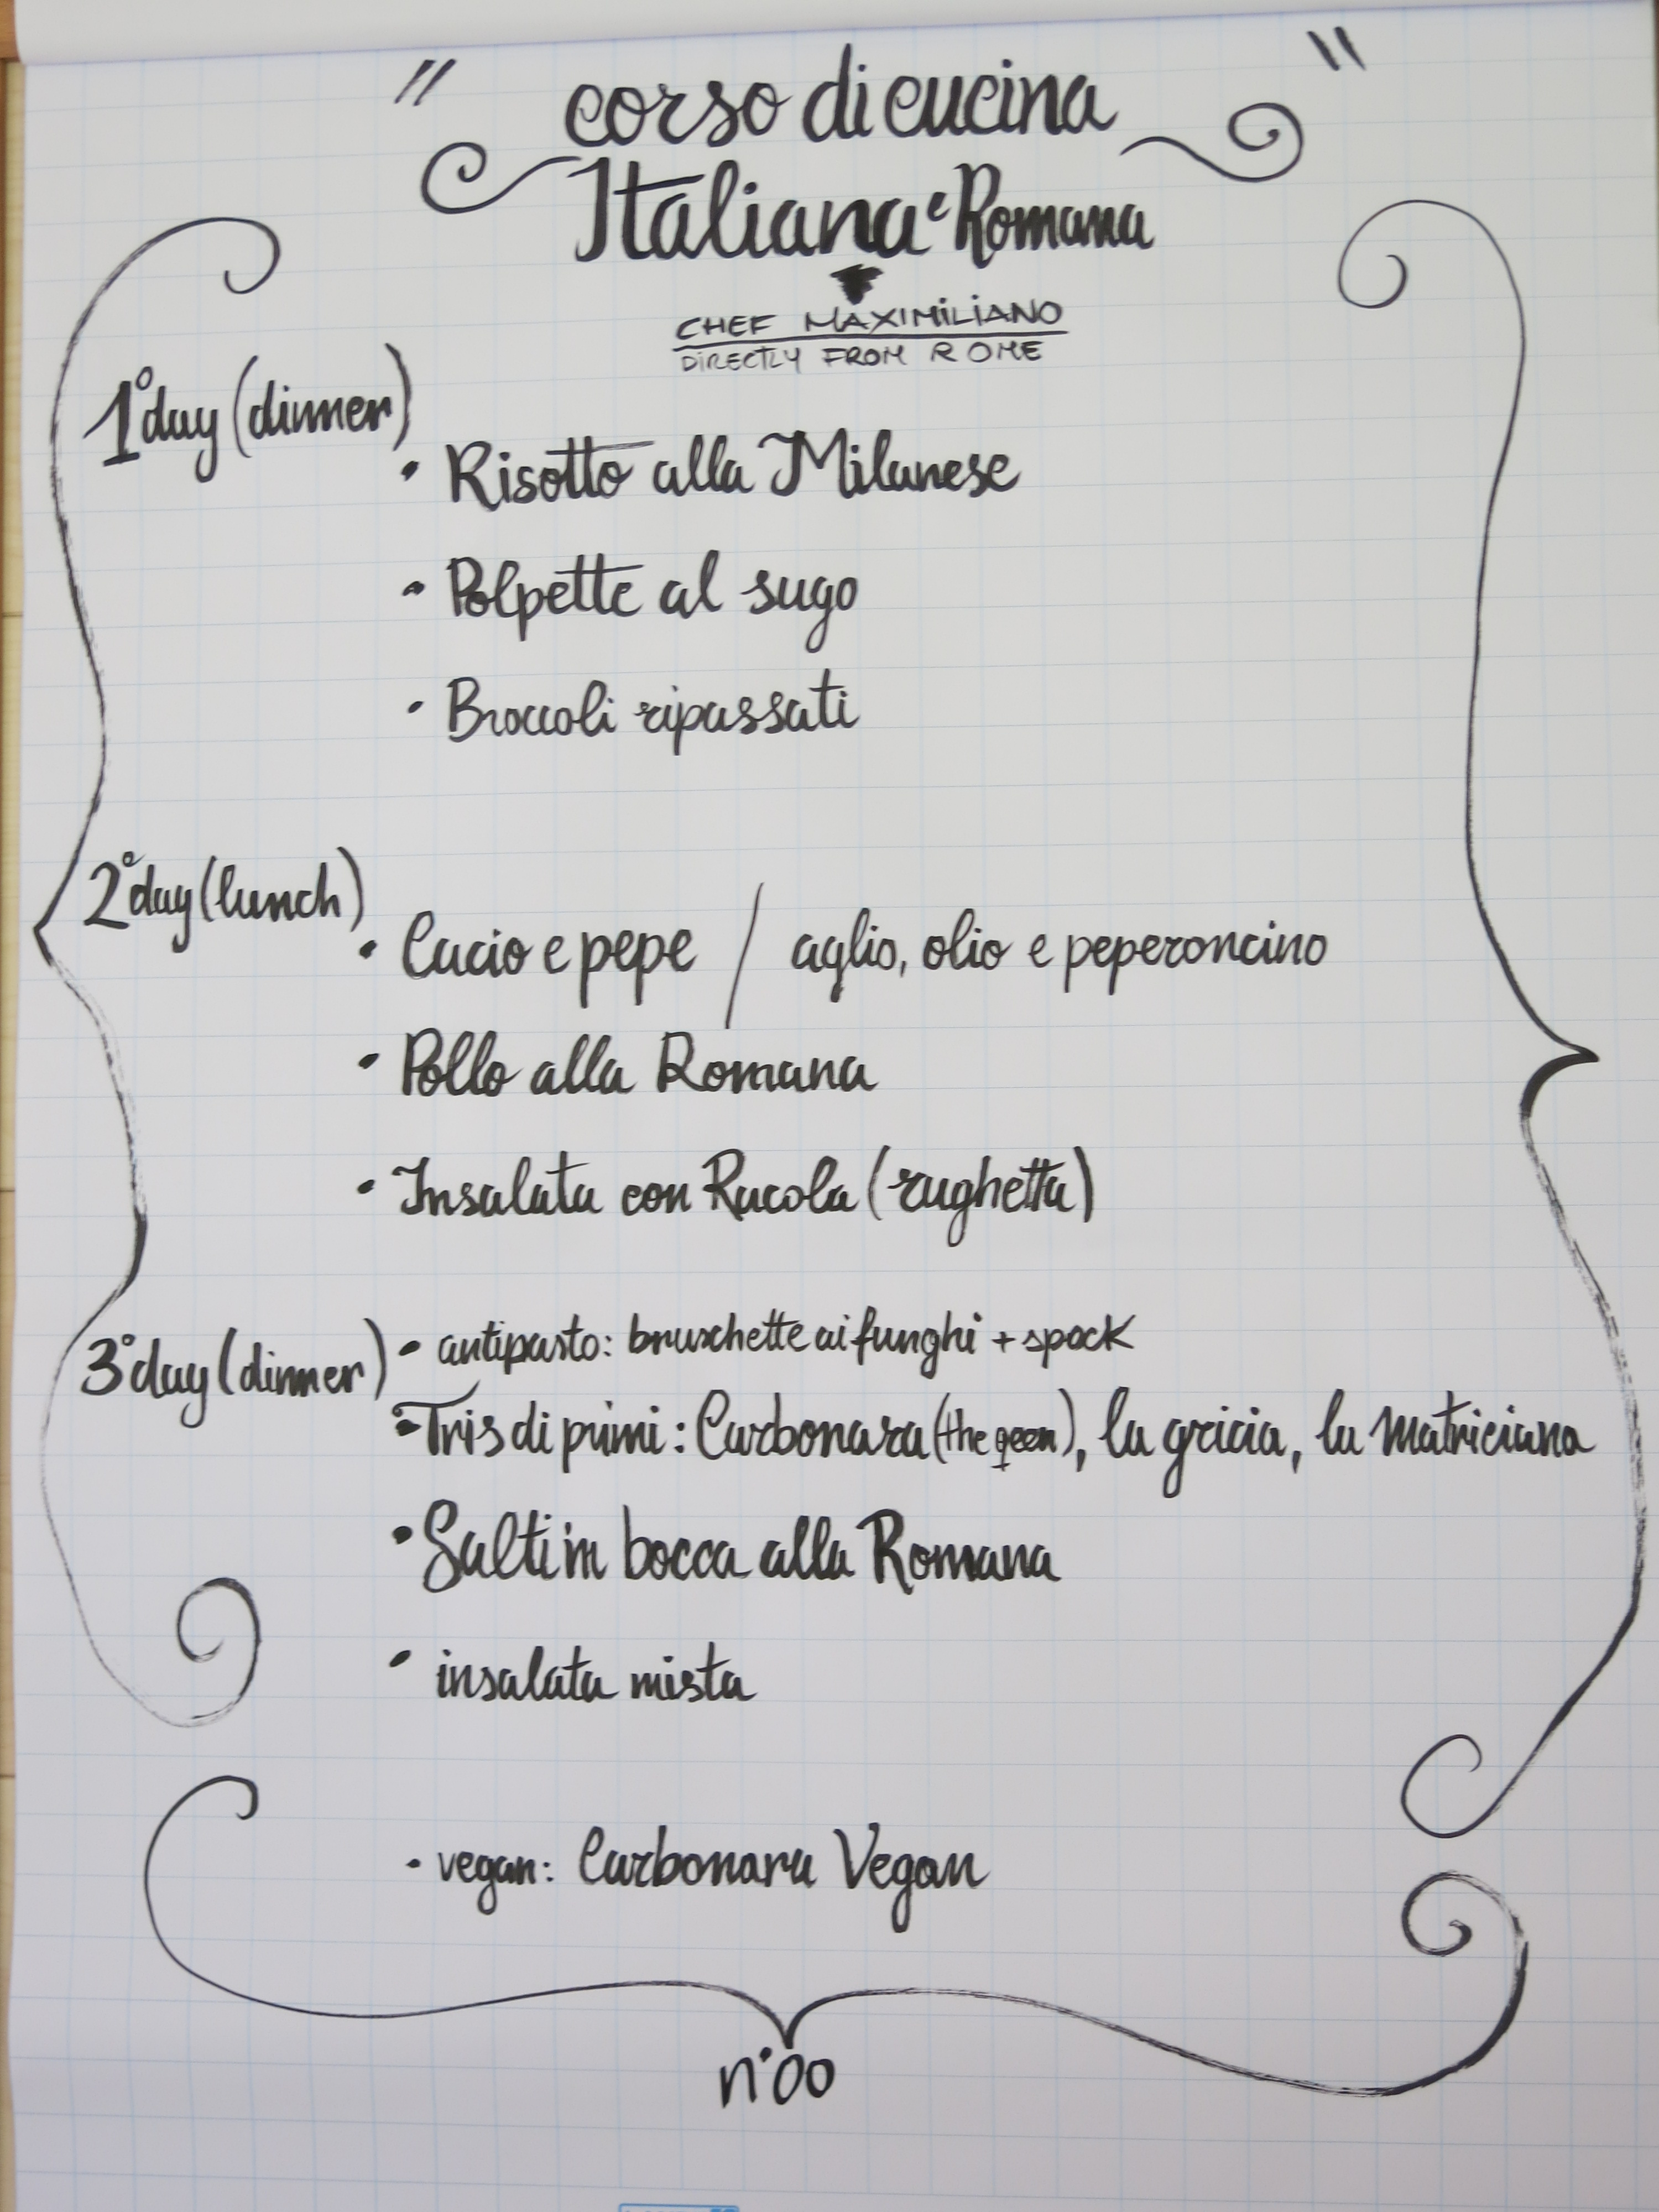 " corso di cucina "
Italiana e Romana
CHEF MAXIMILIANO
DIRECTLY FROM ROME
1° day (dinner)
• Risotto alla Milanese
• Polpette al sugo
• Broccoli ripassati
2° day (lunch)
• Cacio e pepe / aglio, olio e peperoncino
• Pollo alla Romana
• Insalata con Rucola (rughetta)
3° day (dinner) • antipasto: bruschette ai funghi + speck
• Tris di primi: Carbonara (the qeen), la gricia, la matriciana
• Saltim bocca alla Romana
• insalata mista
• vegan: Carbonara Vegan
n°00